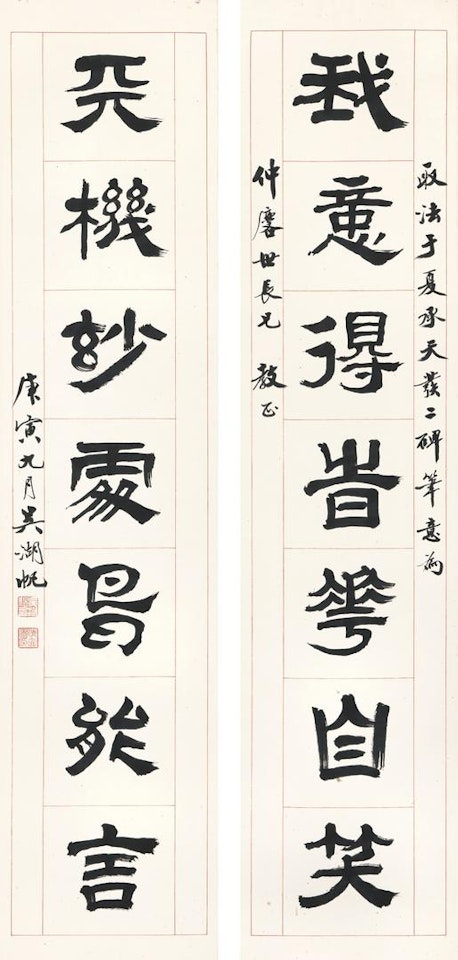 取法于夏承天發二碑筆意為
我意得旹華自笑
仲麐世長兄 教正
天機玅處鳥能言
庚寅九月吳湖帆